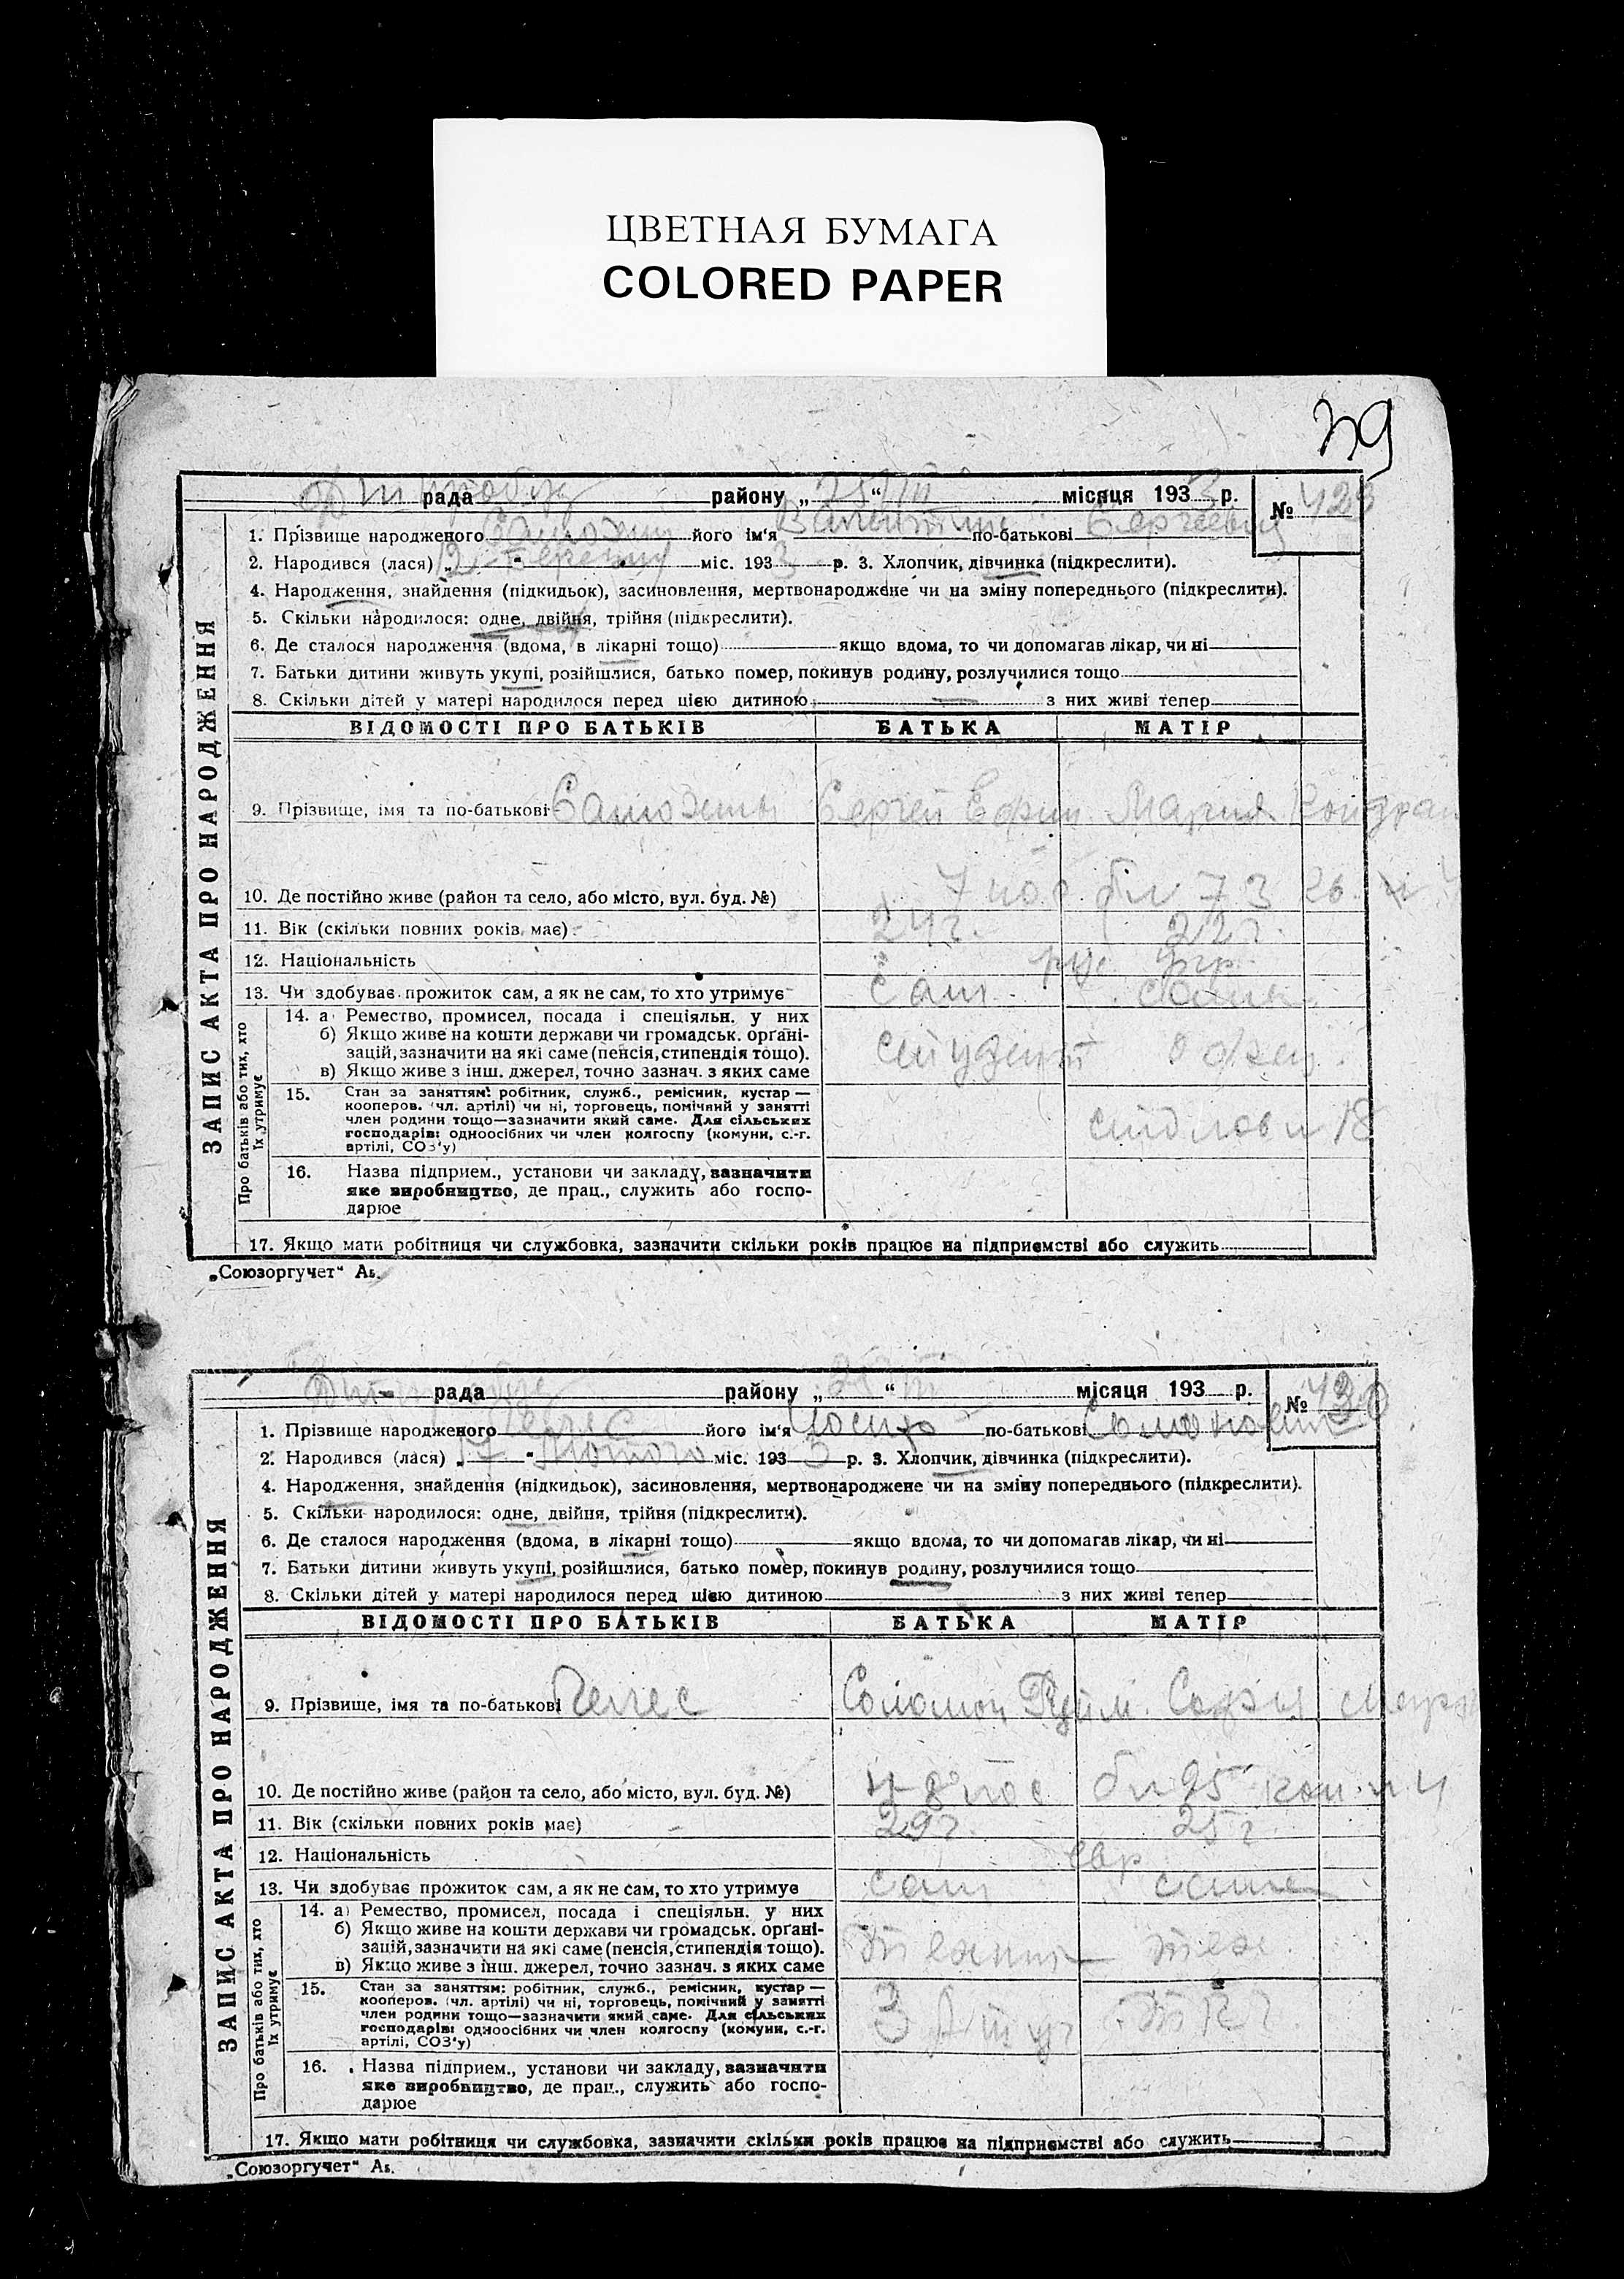 ЦВЕТНАЯ БУМАГА
COLORED PAPER
39
рада району „ 25/III “ місяця 1933 р.
№ 429
1. Прізвище народженого його ім'я по-батькові Сергеевич
2. Народився (лася) „ 12 “ березня міс. 1933 р. 3. Хлопчик, дівчинка (підкреслити).
4. Народження, знайдення (підкидьок), засиновлення, мертвонароджене чи на зміну попереднього (підкреслити).
5. Скільки народилося: одне, двійня, трійня (підкреслити).
6. Де сталося народження (вдома, в лікарні тощо) якщо вдома, то чи допомагав лікар, чи ні
7. Батьки дитини живуть укупі, розійшлися, батько помер, покинув родину, розлучилися тощо
8. Скільки дітей у матері народилося перед цією дитиною — з них живі тепер
ЗАПИС АКТА ПРО НАРОДЖЕННЯ
ВІДОМОСТІ ПРО БАТЬКІВ БАТЬКА МАТІР
9. Прізвище, імя та по-батькові Сергей Ефим Мария Кондрат
10. Де постійно живе (район та село, або місто, вул. буд. №) 7 пос бл 73
11. Вік (скільки повних років має) 24 г. 22 г.
12. Національність рус укр
13. Чи здобуває прожиток сам, а як не сам, то хто утримує сам сама
Про батьків або тих, хто їх утримує
14. а) Ремество, промисел, посада і спеціяльн. у них
б) Якщо живе на кошти держави чи громадськ. орґані-
зацій, зазначити на які саме (пенсія, стипендія тощо). студент
в) Якщо живе з інш. джерел, точно зазнач. з яких саме
15. Стан за заняттям: робітник, служб., ремісник, кустар —
кооперов. (чл. артілі) чи ні, торговець, помічний у занятті
член родини тощо—зазначити який саме. Для сільських
господарів: одноосібних чи член колгоспу (комуни, с.-г.
артілі, СОЗ'у) столов 18
16. Назва підприєм., установи чи закладу, зазначити
яке виробництво, де прац., служить або госпо-
дарює
17. Якщо мати робітниця чи службовка, зазначити скільки років працює на підприємстві або служить
„Союзоргучет“
рада району „ “ місяця 193 р.
№ 430
1. Прізвище народженого його ім'я по-батькові
2. Народився (лася) „ 17 “ лютого міс. 1933 р. 3. Хлопчик, дівчинка (підкреслити).
4. Народження, знайдення (підкидьок), засиновлення, мертвонароджене чи на зміну попереднього (підкреслити).
5. Скільки народилося: одне, двійня, трійня (підкреслити).
6. Де сталося народження (вдома, в лікарні тощо) якщо вдома, то чи допомагав лікар, чи ні
7. Батьки дитини живуть укупі, розійшлися, батько помер, покинув родину, розлучилися тощо
8. Скільки дітей у матері народилося перед цією дитиною з них живі тепер
ЗАПИС АКТА ПРО НАРОДЖЕННЯ
ВІДОМОСТІ ПРО БАТЬКІВ БАТЬКА МАТІР
9. Прізвище, імя та по-батькові Соломон
10. Де постійно живе (район та село, або місто, вул. буд. №) пос бл 95
11. Вік (скільки повних років має) 29 г. 25 г.
12. Національність евр
13. Чи здобуває прожиток сам, а як не сам, то хто утримує сам сама
Про батьків або тих, хто їх утримує
14. а) Ремество, промисел, посада і спеціяльн. у них
б) Якщо живе на кошти держави чи громадськ. орґані-
зацій, зазначити на які саме (пенсія, стипендія тощо). тех
в) Якщо живе з інш. джерел, точно зазнач. з яких саме
15. Стан за заняттям: робітник, служб., ремісник, кустар —
кооперов. (чл. артілі) чи ні, торговець, помічний у занятті
член родини тощо—зазначити який саме. Для сільських
господарів: одноосібних чи член колгоспу (комуни, с.-г.
артілі, СОЗ'у)
16. Назва підприєм., установи чи закладу, зазначити
яке виробництво, де прац., служить або госпо-
дарює
17. Якщо мати робітниця чи службовка, зазначити скільки років працює на підприємстві або служить
„Союзоргучет“